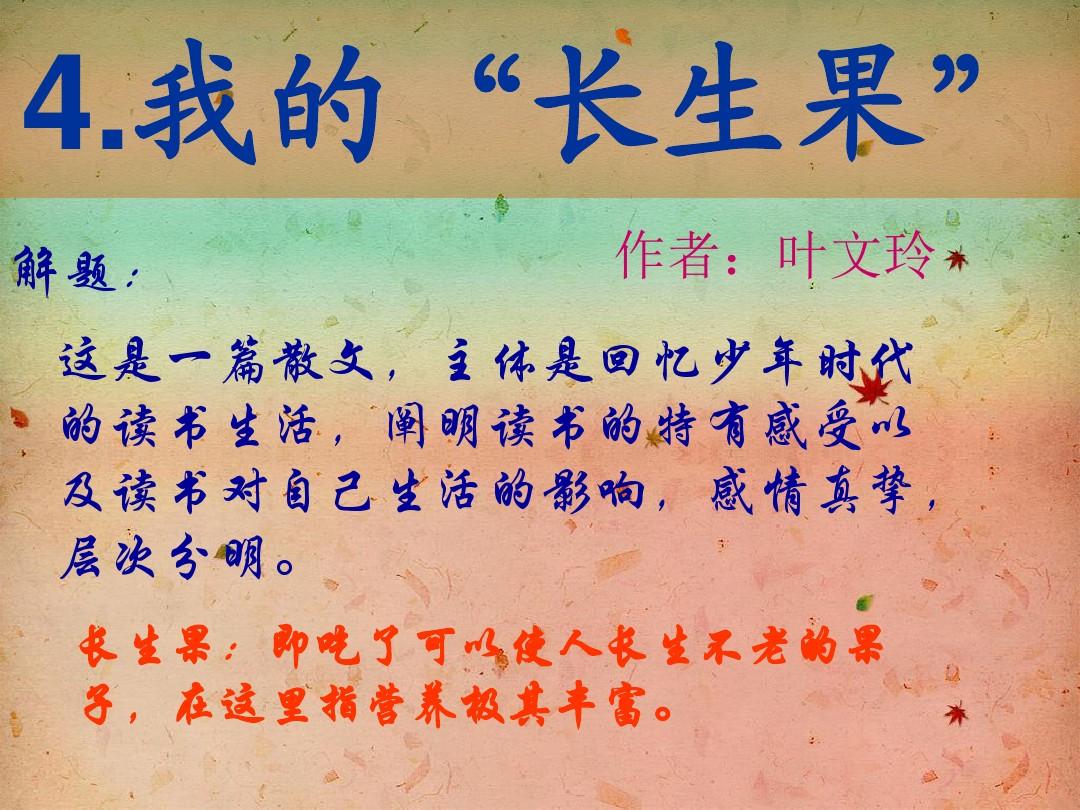 4.我的“长生果”
作者：叶文玲
解题：
这是一篇散文，主体是回忆少年时代
的读书生活，阐明读书的特有感受以
及读书对自己生活的影响，感情真挚，
层次分明。
长生果：即吃了可以使人长生不老的果
子，在这里指营养极其丰富。